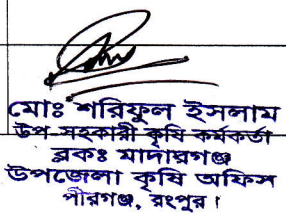 মোঃ শরিফুল ইসলাম
উপ-সহকারী কৃষি কর্মকর্তা
ব্লকঃ মাদারগঞ্জ
উপজেলা কৃষি অফিস
পীরগঞ্জ, রংপুর।